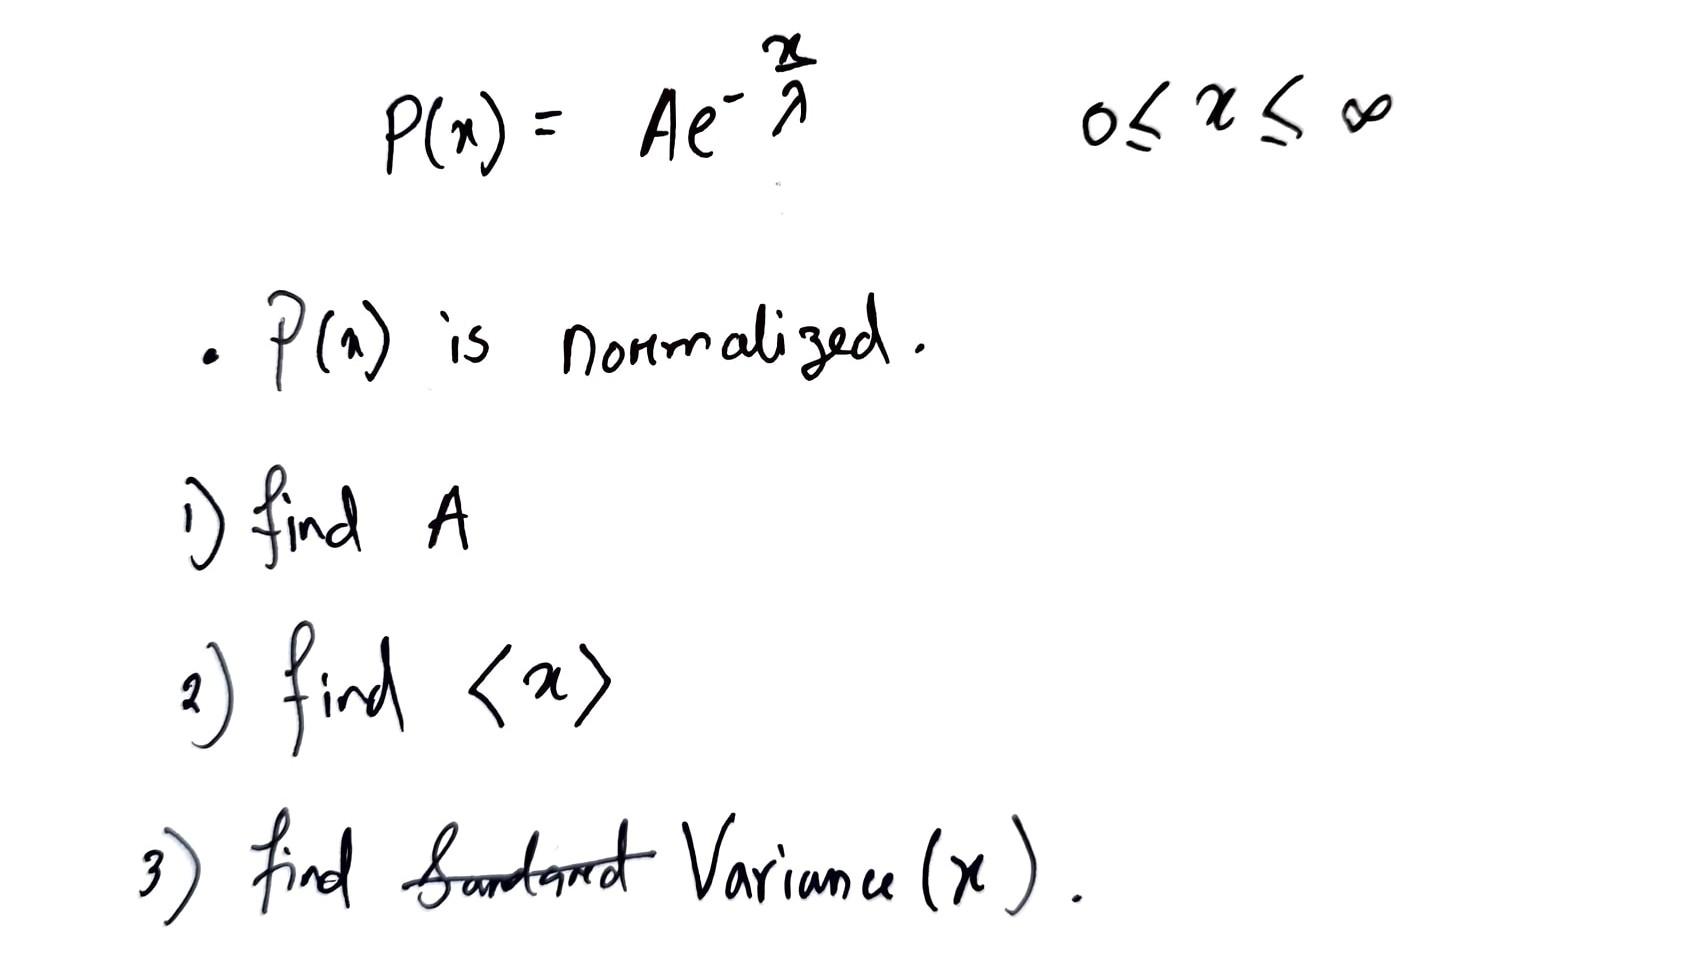 P(x) = Ae^{-x/λ} 0 ≤ x ≤ ∞
. P(x) is normalized.
1) find A
2) find ⟨x⟩
3) find Variance (x).